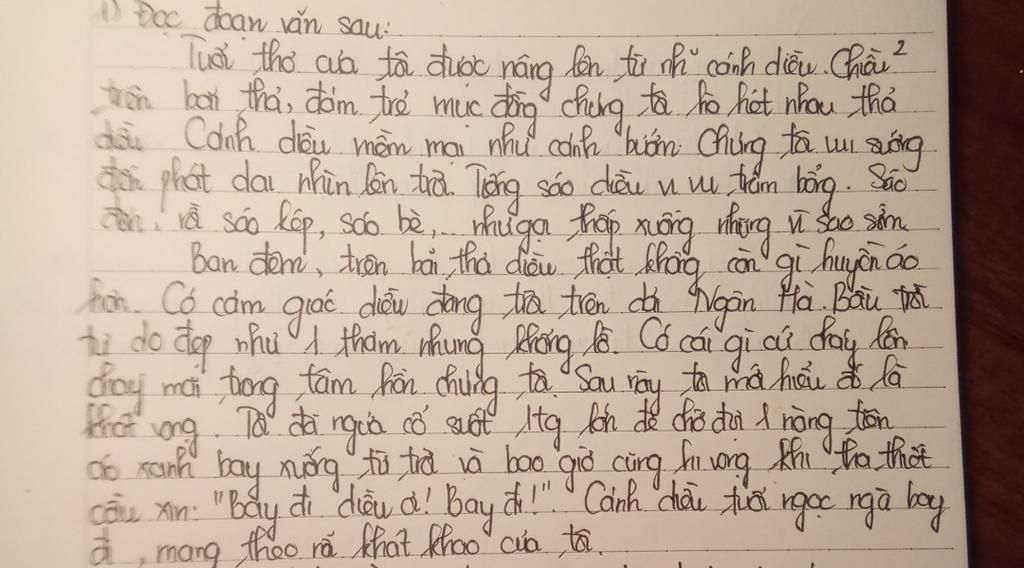 1) Đọc đoạn văn sau:
Tuổi thơ của tôi được nâng lên từ nh~ cánh diều. Chiều²
trên bãi thả, đám trẻ mục đồng chúng tôi hò hét nhau thả
diều Cánh diều mềm mại như cánh bướm. Chúng tôi vui sướng
đến phát dại nhìn lên trời. Tiếng sáo diều vi vu trầm bổng. Sáo
đơn, rồi sáo kép, sáo bè,... như gọi thấp xuống những vì sao sớm
Ban đêm, trên bãi thả diều thật không còn gì huyền ảo
hơn. Có cảm giác diều đang trôi trên dải Ngân Hà. Bầu trời
tự do đẹp như 1 thảm nhung khổng lồ. Có cái gì cứ cháy lên
cháy mãi trong tâm hồn chúng tôi. Sau này tôi mới hiểu đó là
khát vọng. Tôi đã ngửa cổ suốt 1 tg lớn để chờ đợi 1 nàng tiên
áo xanh bay xuống từ trời và bao giờ cũng hi vọng khi tha thiết
cầu xin: "Bay đi diều ơi! Bay đi!". Cánh diều tuổi ngọc ngà bay
đi, mang theo nỗi khát khao của tôi.